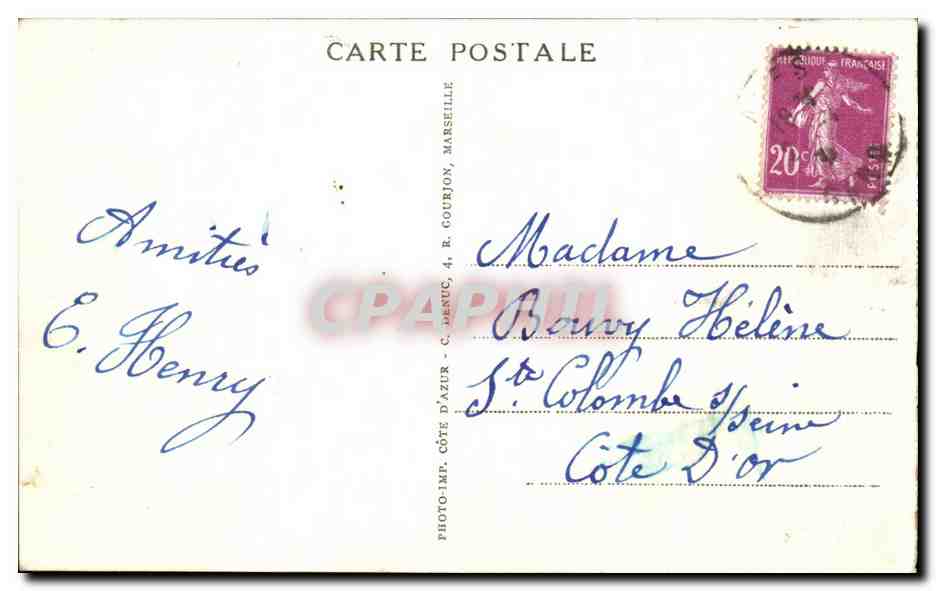 CARTE POSTALE
RÉPUBLIQUE FRANÇAISE
20c
POSTES
Amitiés
E. Henry
PHOTO-IMP. CÔTE D'AZUR - C. DENUC, 4, R. GOURJON, MARSEILLE
CPAPHIL
Madame
Bouvy Hélène
Ste Colombe s/seine
Côte D'or